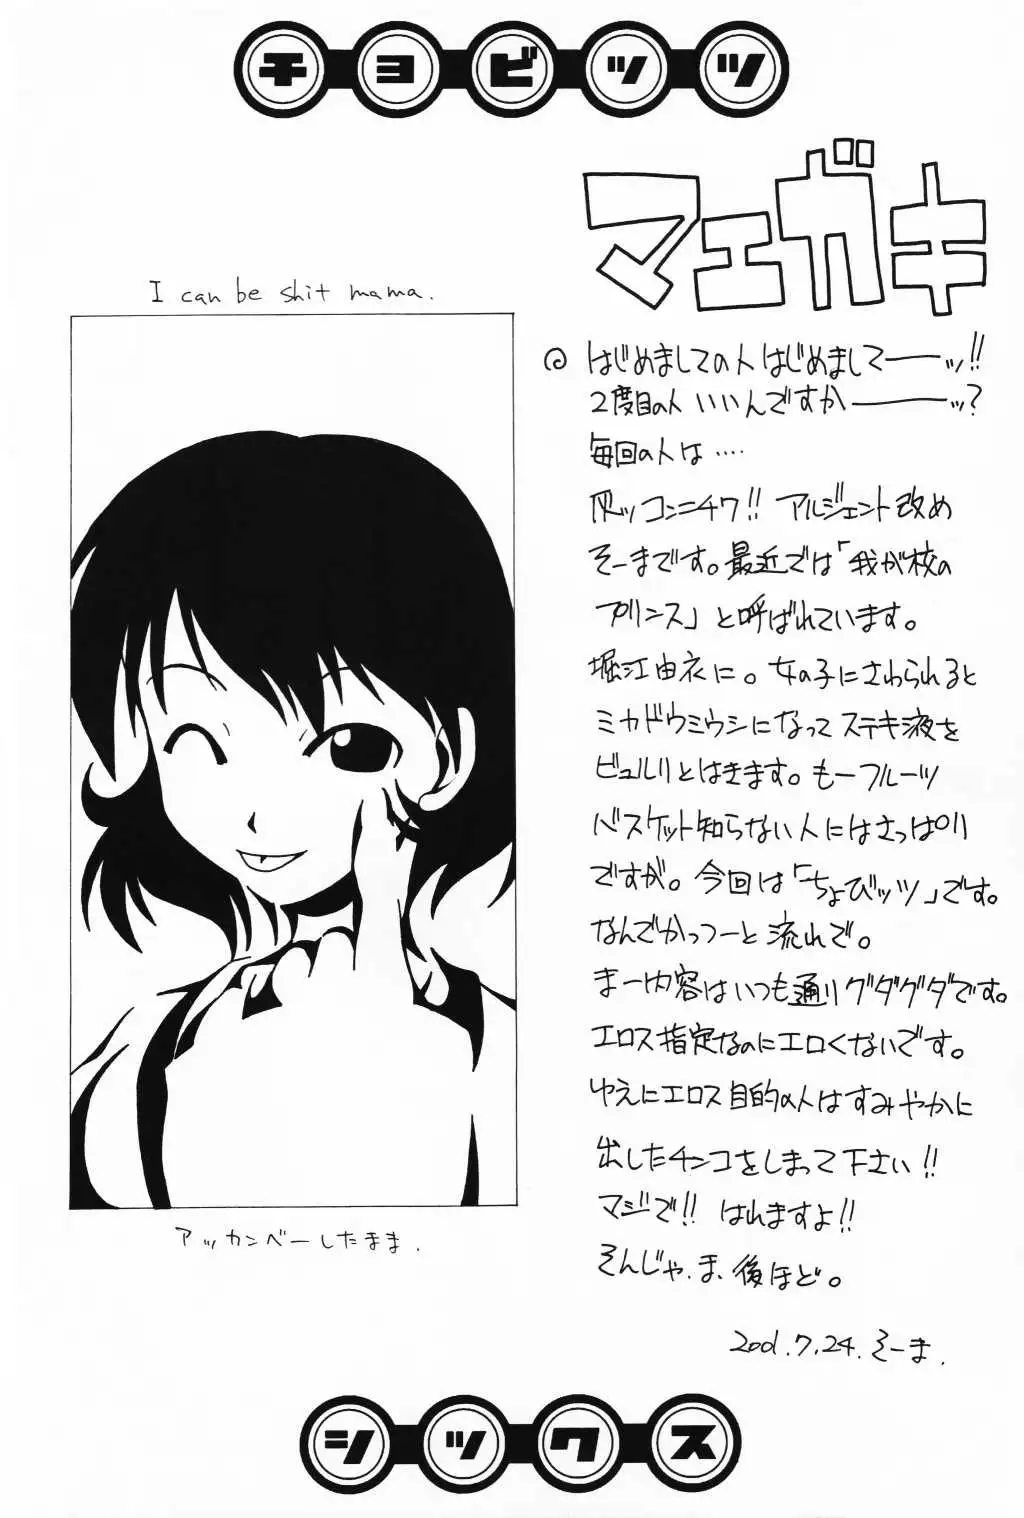 チヨビッツ
マエガキ
I can be shit mama.
はじめましての人はじめましてーーッ!!
2度目の人いいんですかーーーッ?
毎回の人は‥‥
灰ッコンニチワ!! アルジェント改め
そーまです。最近では「我が校の
プリンス」と呼ばれています。
堀江由衣に。女の子にさわられると
ミカドウミウシになってステキ液を
ビュルリとはきます。もーフルーツ
バスケット知らない人にはさっぱり
ですが。今回は「ちょびッツ」です。
なんでかっつーと流れで。
まー内容はいつも通りグダグダです。
エロス指定なのにエロくないです。
ゆえにエロス目的の人はすみやかに
出したチンコをしまって下さい!!
マジで!! はれますよ!!
そんじゃ、ま、後ほど。
2001.7.24.そーま.
アッカンベーしたまま.
シックス